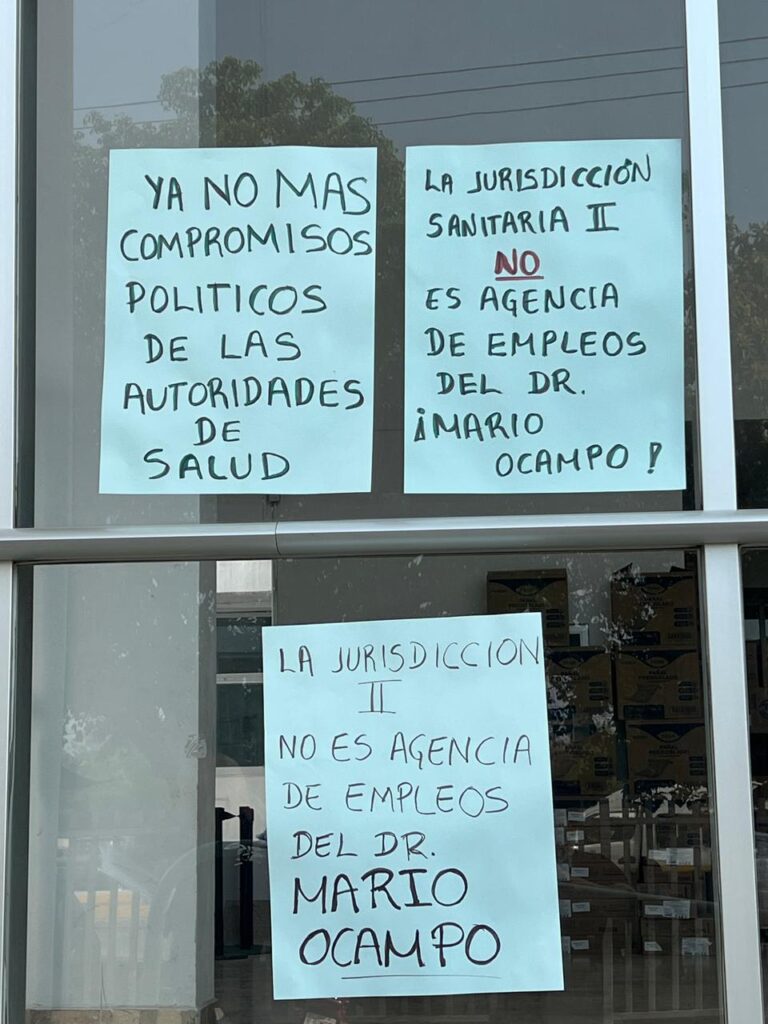 YA NO MAS
COMPROMISOS
POLITICOS
DE LAS
AUTORIDADES
DE
SALUD
LA JURISDICCIÓN
SANITARIA II
NO
ES AGENCIA
DE EMPLEOS
DEL DR.
¡MARIO
OCAMPO!
LA JURISDICCION
II
NO ES AGENCIA
DE EMPLEOS
DEL DR.
MARIO
OCAMPO